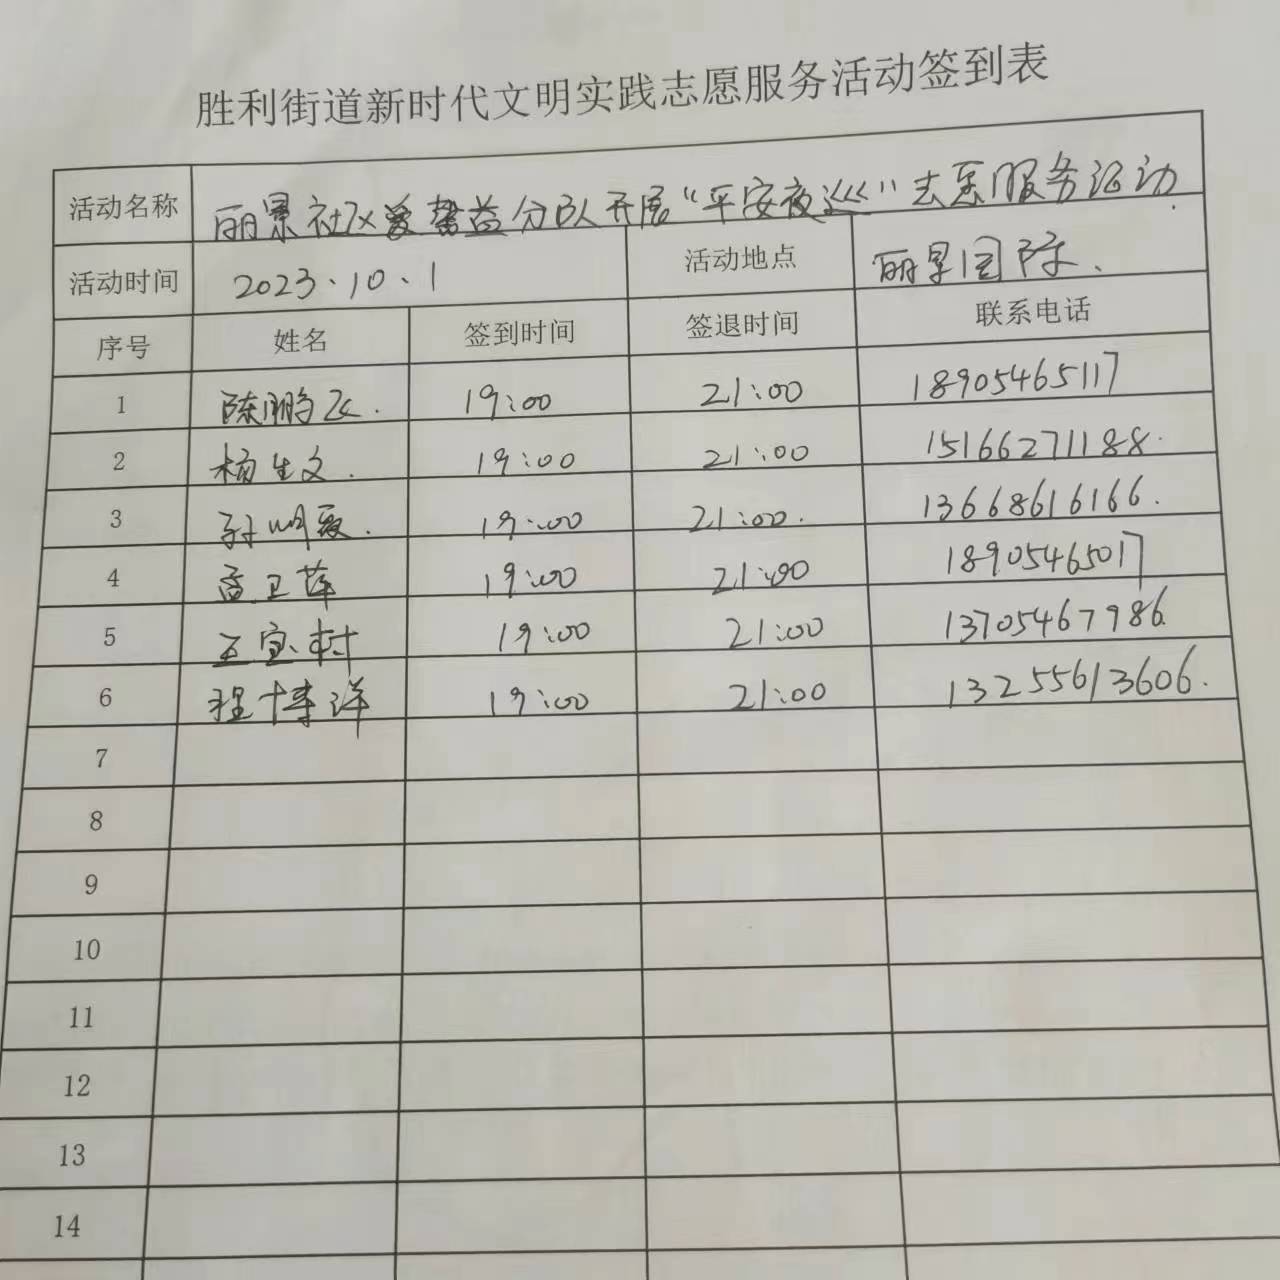 胜利街道新时代文明实践志愿服务活动签到表
活动名称 丽景社区爱馨益分队开展“平安夜巡”志愿服务活动
活动时间 2023.10.1 活动地点 丽景国际.
序号 姓名 签到时间 签退时间 联系电话
1 陈鹏飞. 19:00 21:00 18905465117
2 杨生文. 19:00 21:00 15166271188.
3 孙明霞. 19:00 21:00. 13668616166.
4 孟卫萍 19:00 21:00 18905465017
5 王宝村 19:00 21:00 13705467986.
6 程博洋 19:00 21:00 13255613606.
7
8
9
10
11
12
13
14